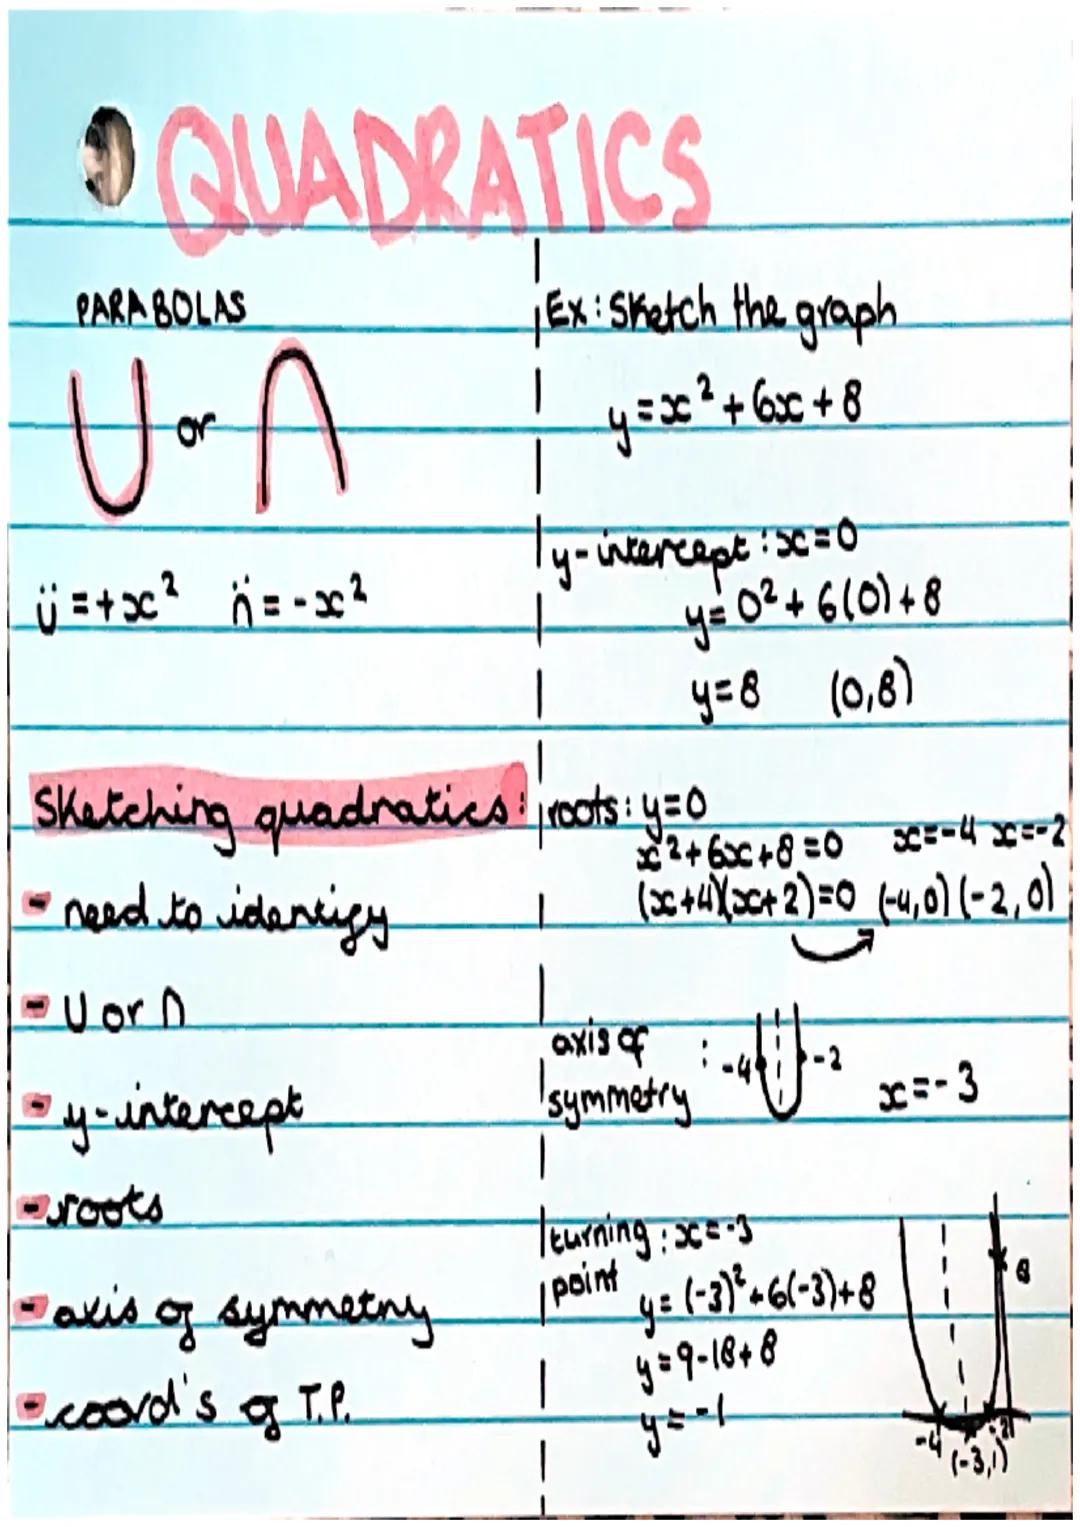 QUADRATICS
PARABOLAS
U or ∩
ü = +x² n̈ = -x²
Sketching quadratics:
- need to identify
- U or ∩
- y-intercept
- roots
- axis of symmetry
- coord's of T.P.
Ex: Sketch the graph
y = x² + 6x + 8
y-intercept: x = 0
y = 0² + 6(0) + 8
y = 8 (0,8)
roots: y = 0
x² + 6x + 8 = 0 x = -4 x = -2
(x+4)(x+2) = 0 (-4,0) (-2,0)
axis of symmetry : -4 -2 x = -3
turning point : x = -3
y = (-3)² + 6(-3) + 8
y = 9 - 18 + 8
y = -1
8
-4 -2
(-3,1)